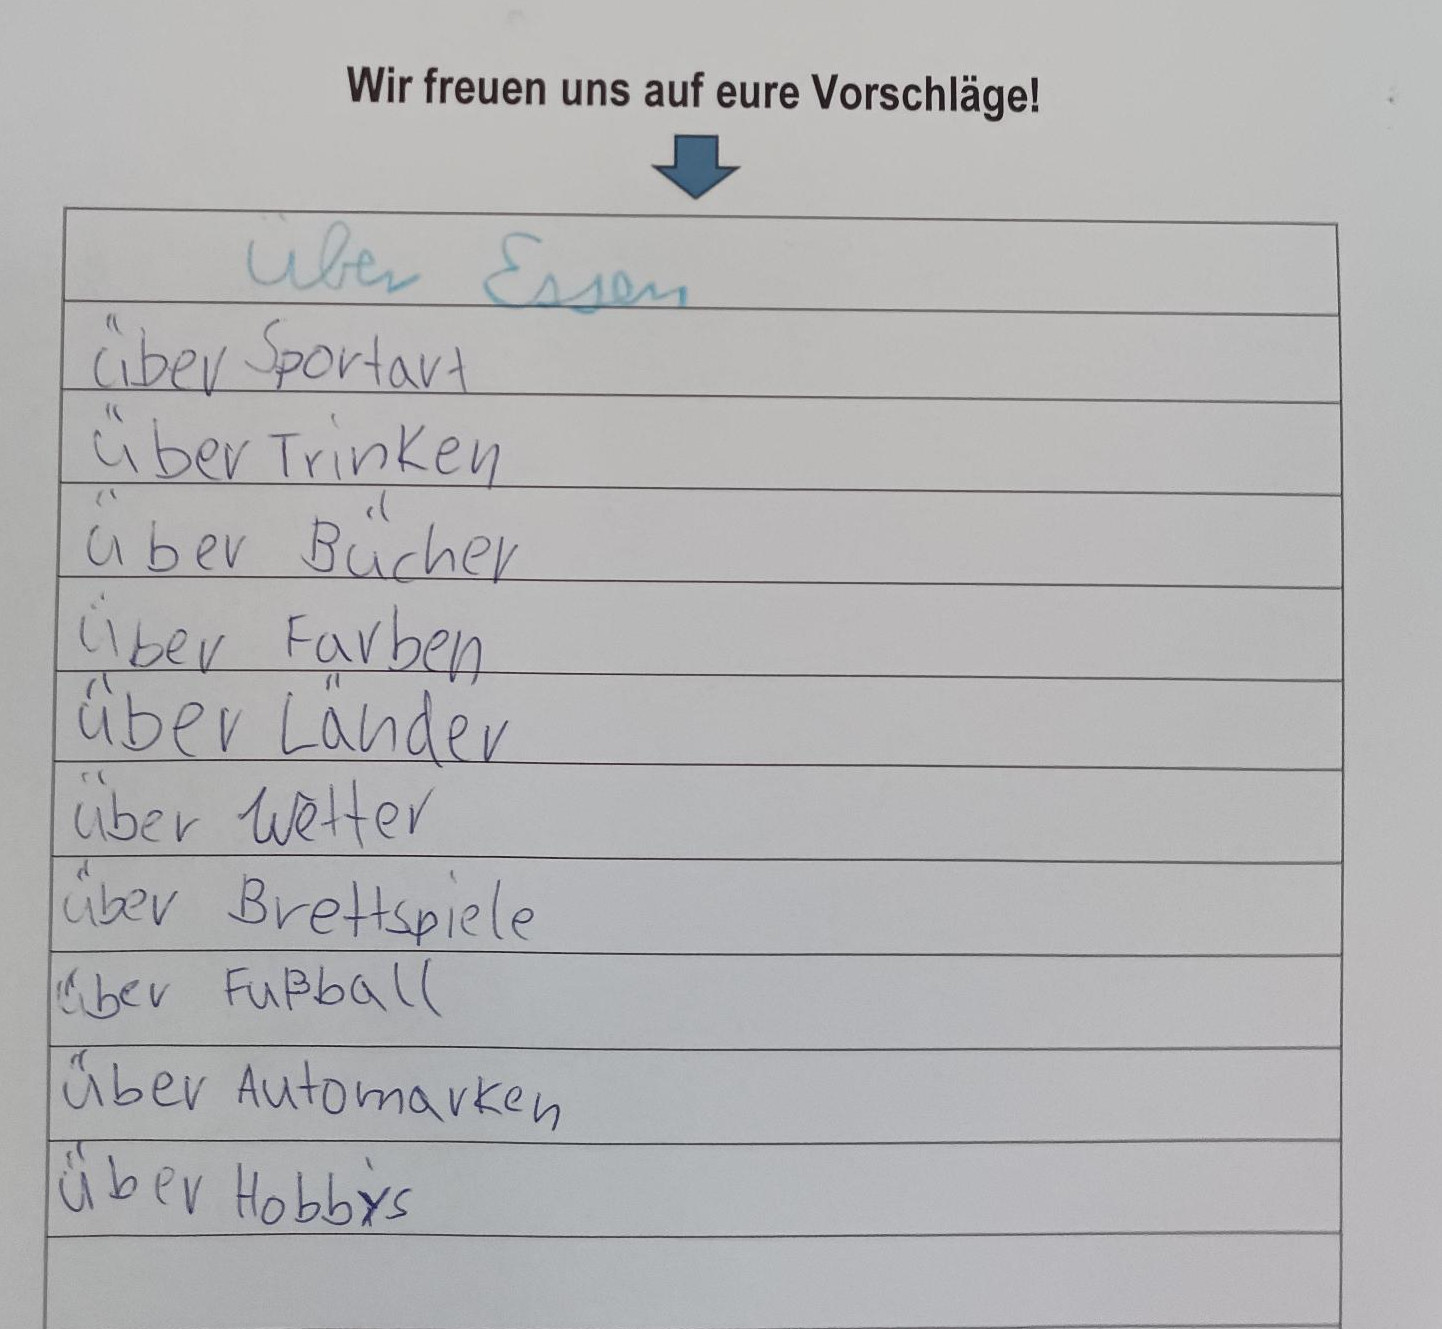 Wir freuen uns auf eure Vorschläge!
über Essen
über Sportart
über Trinken
über Bücher
über Farben
über Länder
über Wetter
über Brettspiele
über Fußball
über Automarken
über Hobbys